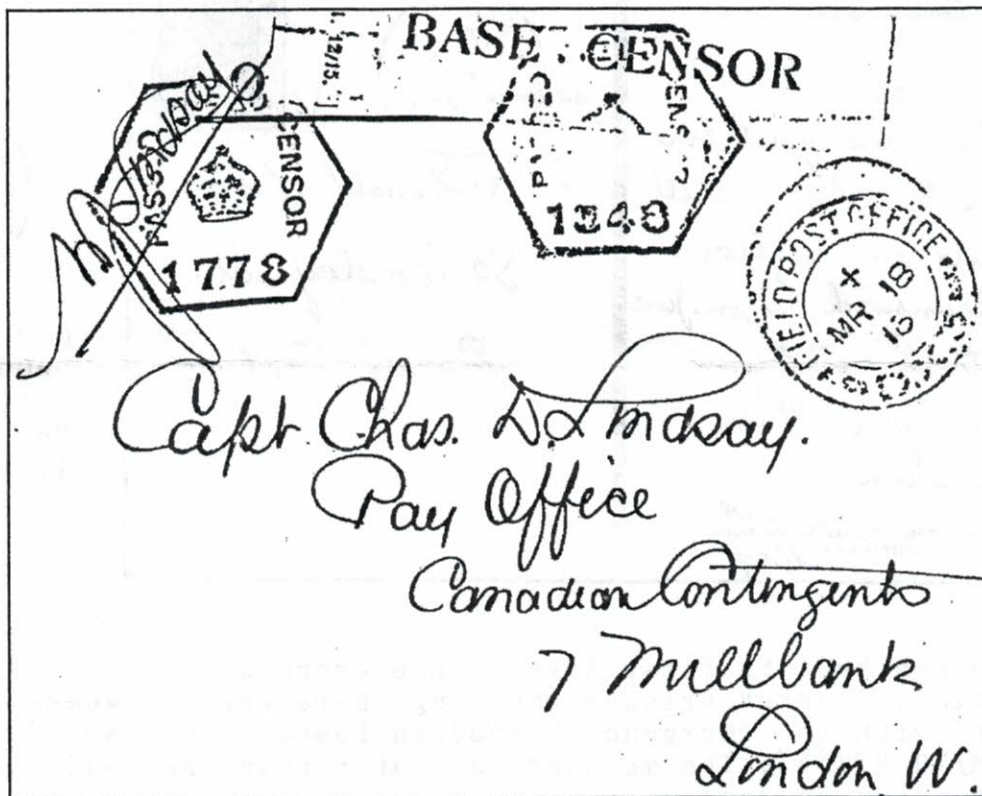 12/15.
BASE CENSOR
PASSED CENSOR
1778
1348
FIELD POST OFFICE
MR 18
15
Capt. Chas. D. Lindsay.
Pay Office
Canadian Contingents
7 Millbank
London, W.